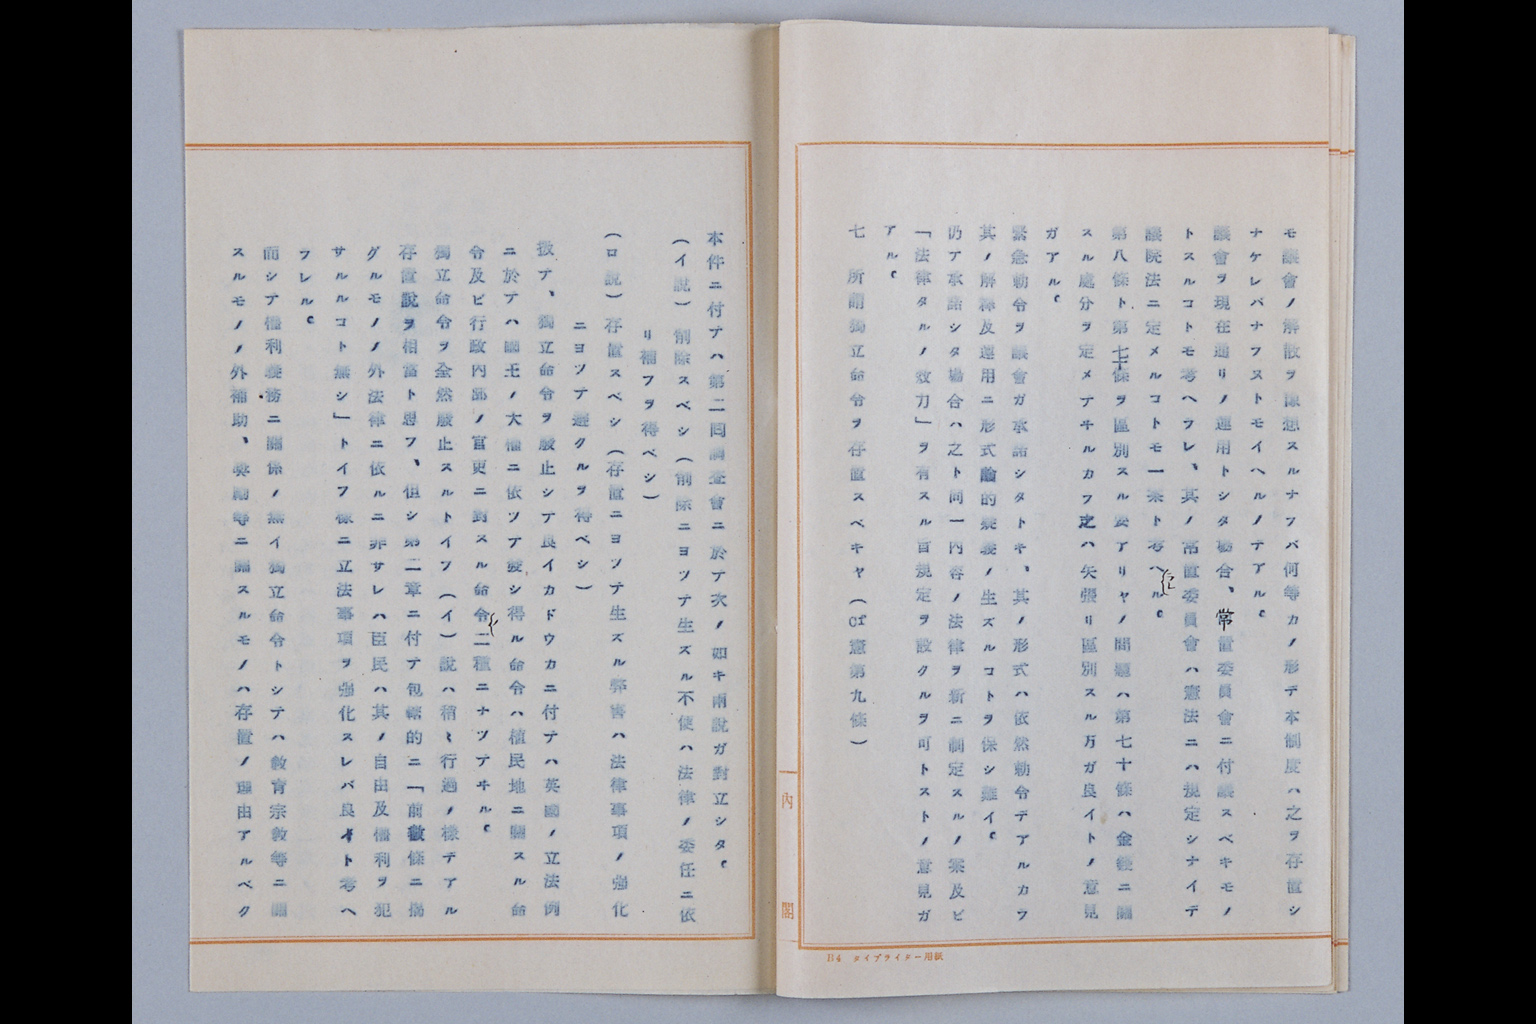 モ議會ノ解散ヲ豫想スルナラバ何等カノ形デ本制度ハ之ヲ存置シ
ナケレバナラヌトモイヘルノデアル。
議會ヲ現在通リノ運用トシタ場合、常置委員會ニ付議スベキモノ
トスルコトモ考ヘラレ、其ノ常置委員會ハ憲法ニハ規定シナイデ
議院法ニ定メルコトモ一案ト考ヘル。
第八條ト第七十條ヲ區別スル要アリヤノ問題ハ第七十條ハ金錢ニ關
スル處分ヲ定メテヰルカラ之ハ矢張リ區別スル方ガ良イトノ意見
ガアル。
緊急勅令ヲ議會ガ承諾シタトキ、其ノ形式ハ依然勅令デアルカラ
其ノ解釋及運用ニ形式論的疑義ノ生ズルコトヲ保シ難イ。
仍テ承諾シタ場合ハ之ト同一内容ノ法律ヲ新ニ制定スルノ案及ビ
「法律タルノ效力」ヲ有スル旨規定ヲ設クルヲ可トストノ意見ガ
アル。
七 所謂獨立命令ヲ存置スベキヤ(cf憲第九條)
內閣
B4 タイプライター用紙
本件ニ付テハ第二回調査會ニ於テ次ノ如キ兩說ガ對立シタ。
(イ說)削除スベシ(削除ニヨツテ生ズル不便ハ法律ノ委任ニ依
リ補フヲ得ベシ)
(ロ說)存置スベシ(存置ニヨツテ生ズル弊害ハ法律事項ノ强化
ニヨツテ避クルヲ得ベシ)
扨テ、獨立命令ヲ廢止シテ良イカドウカニ付テハ英國ノ立法例
ニ於テハ國王ノ大權ニ依ツテ發シ得ル命令ハ植民地ニ關スル命
令及ビ行政內部ノ官吏ニ對スル命令二種ニナツテヰル。
獨立命令ヲ全然廢止スルトイフ(イ)說ハ稍〻行過ノ樣デアル
存置說ヲ相當ト思フ、但シ第二章ニ付テ包括的ニ「前數條ニ揭
グルモノノ外法律ニ依ルニ非サレハ臣民ハ其ノ自由及權利ヲ犯
サルルコト無シ」トイフ樣ニ立法事項ヲ强化スレバ良イト考ヘ
ラレル。
而シテ權利義務ニ關係ノ無イ獨立命令トシテハ敎育宗敎等ニ關
スルモノノ外補助、奬勵等ニ關スルモノハ存置ノ理由アルベク